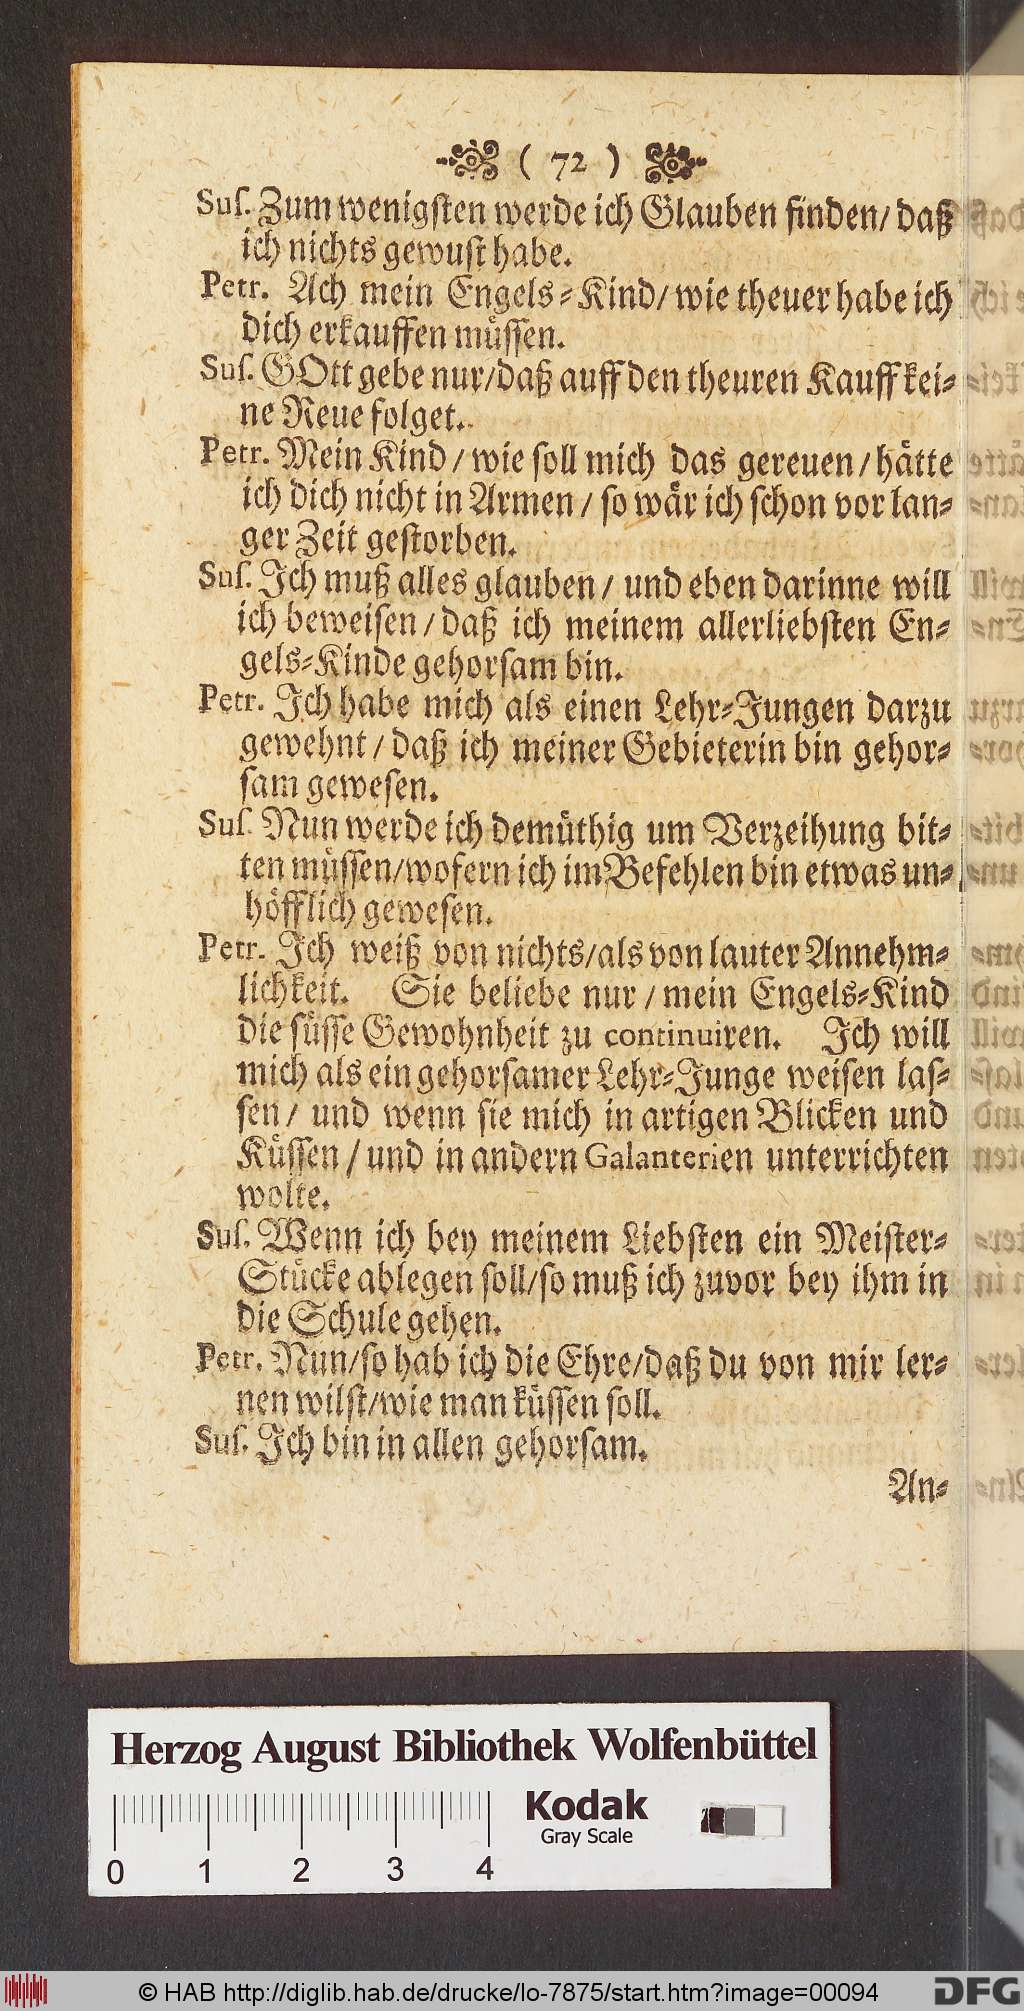 ( 72 )
Sus. Zum wenigsten werde ich Glauben finden/ daß
ich nichts gewust habe.
Petr. Ach mein Engels-Kind/ wie theuer habe ich
dich erkauffen müssen.
Sus. GOtt gebe nur/daß auff den theuren Kauff kei-
ne Reue folget.
Petr. Mein Kind / wie soll mich das gereuen / hätte
ich dich nicht in Armen / so wär ich schon vor lan-
ger Zeit gestorben.
Sus. Ich muß alles glauben / und eben darinne will
ich beweisen / daß ich meinem allerliebsten En-
gels-Kinde gehorsam bin.
Petr. Ich habe mich als einen Lehr-Jungen darzu
gewehnt / daß ich meiner Gebieterin bin gehor-
sam gewesen.
Sus. Nun werde ich demüthig um Verzeihung bit-
ten müssen/wofern ich im Befehlen bin etwas un-
höfflich gewesen.
Petr. Ich weiß von nichts/als von lauter Annehm-
lichkeit. Sie beliebe nur / mein Engels-Kind
die süsse Gewohnheit zu continuiren. Ich will
mich als ein gehorsamer Lehr-Junge weisen las-
sen / und wenn sie mich in artigen Blicken und
Küssen / und in andern Galanterien unterrichten
wolte.
Sus. Wenn ich bey meinem Liebsten ein Meister-
Stücke ablegen soll/so muß ich zuvor bey ihm in
die Schule gehen.
Petr. Nun/so hab ich die Ehre/daß du von mir ler-
nen wilst/wie man küssen soll.
Sus. Ich bin in allen gehorsam.
An-
Herzog August Bibliothek Wolfenbüttel
Kodak
Gray Scale
0 1 2 3 4
© HAB http://diglib.hab.de/drucke/lo-7875/start.htm?image=00094
DFG